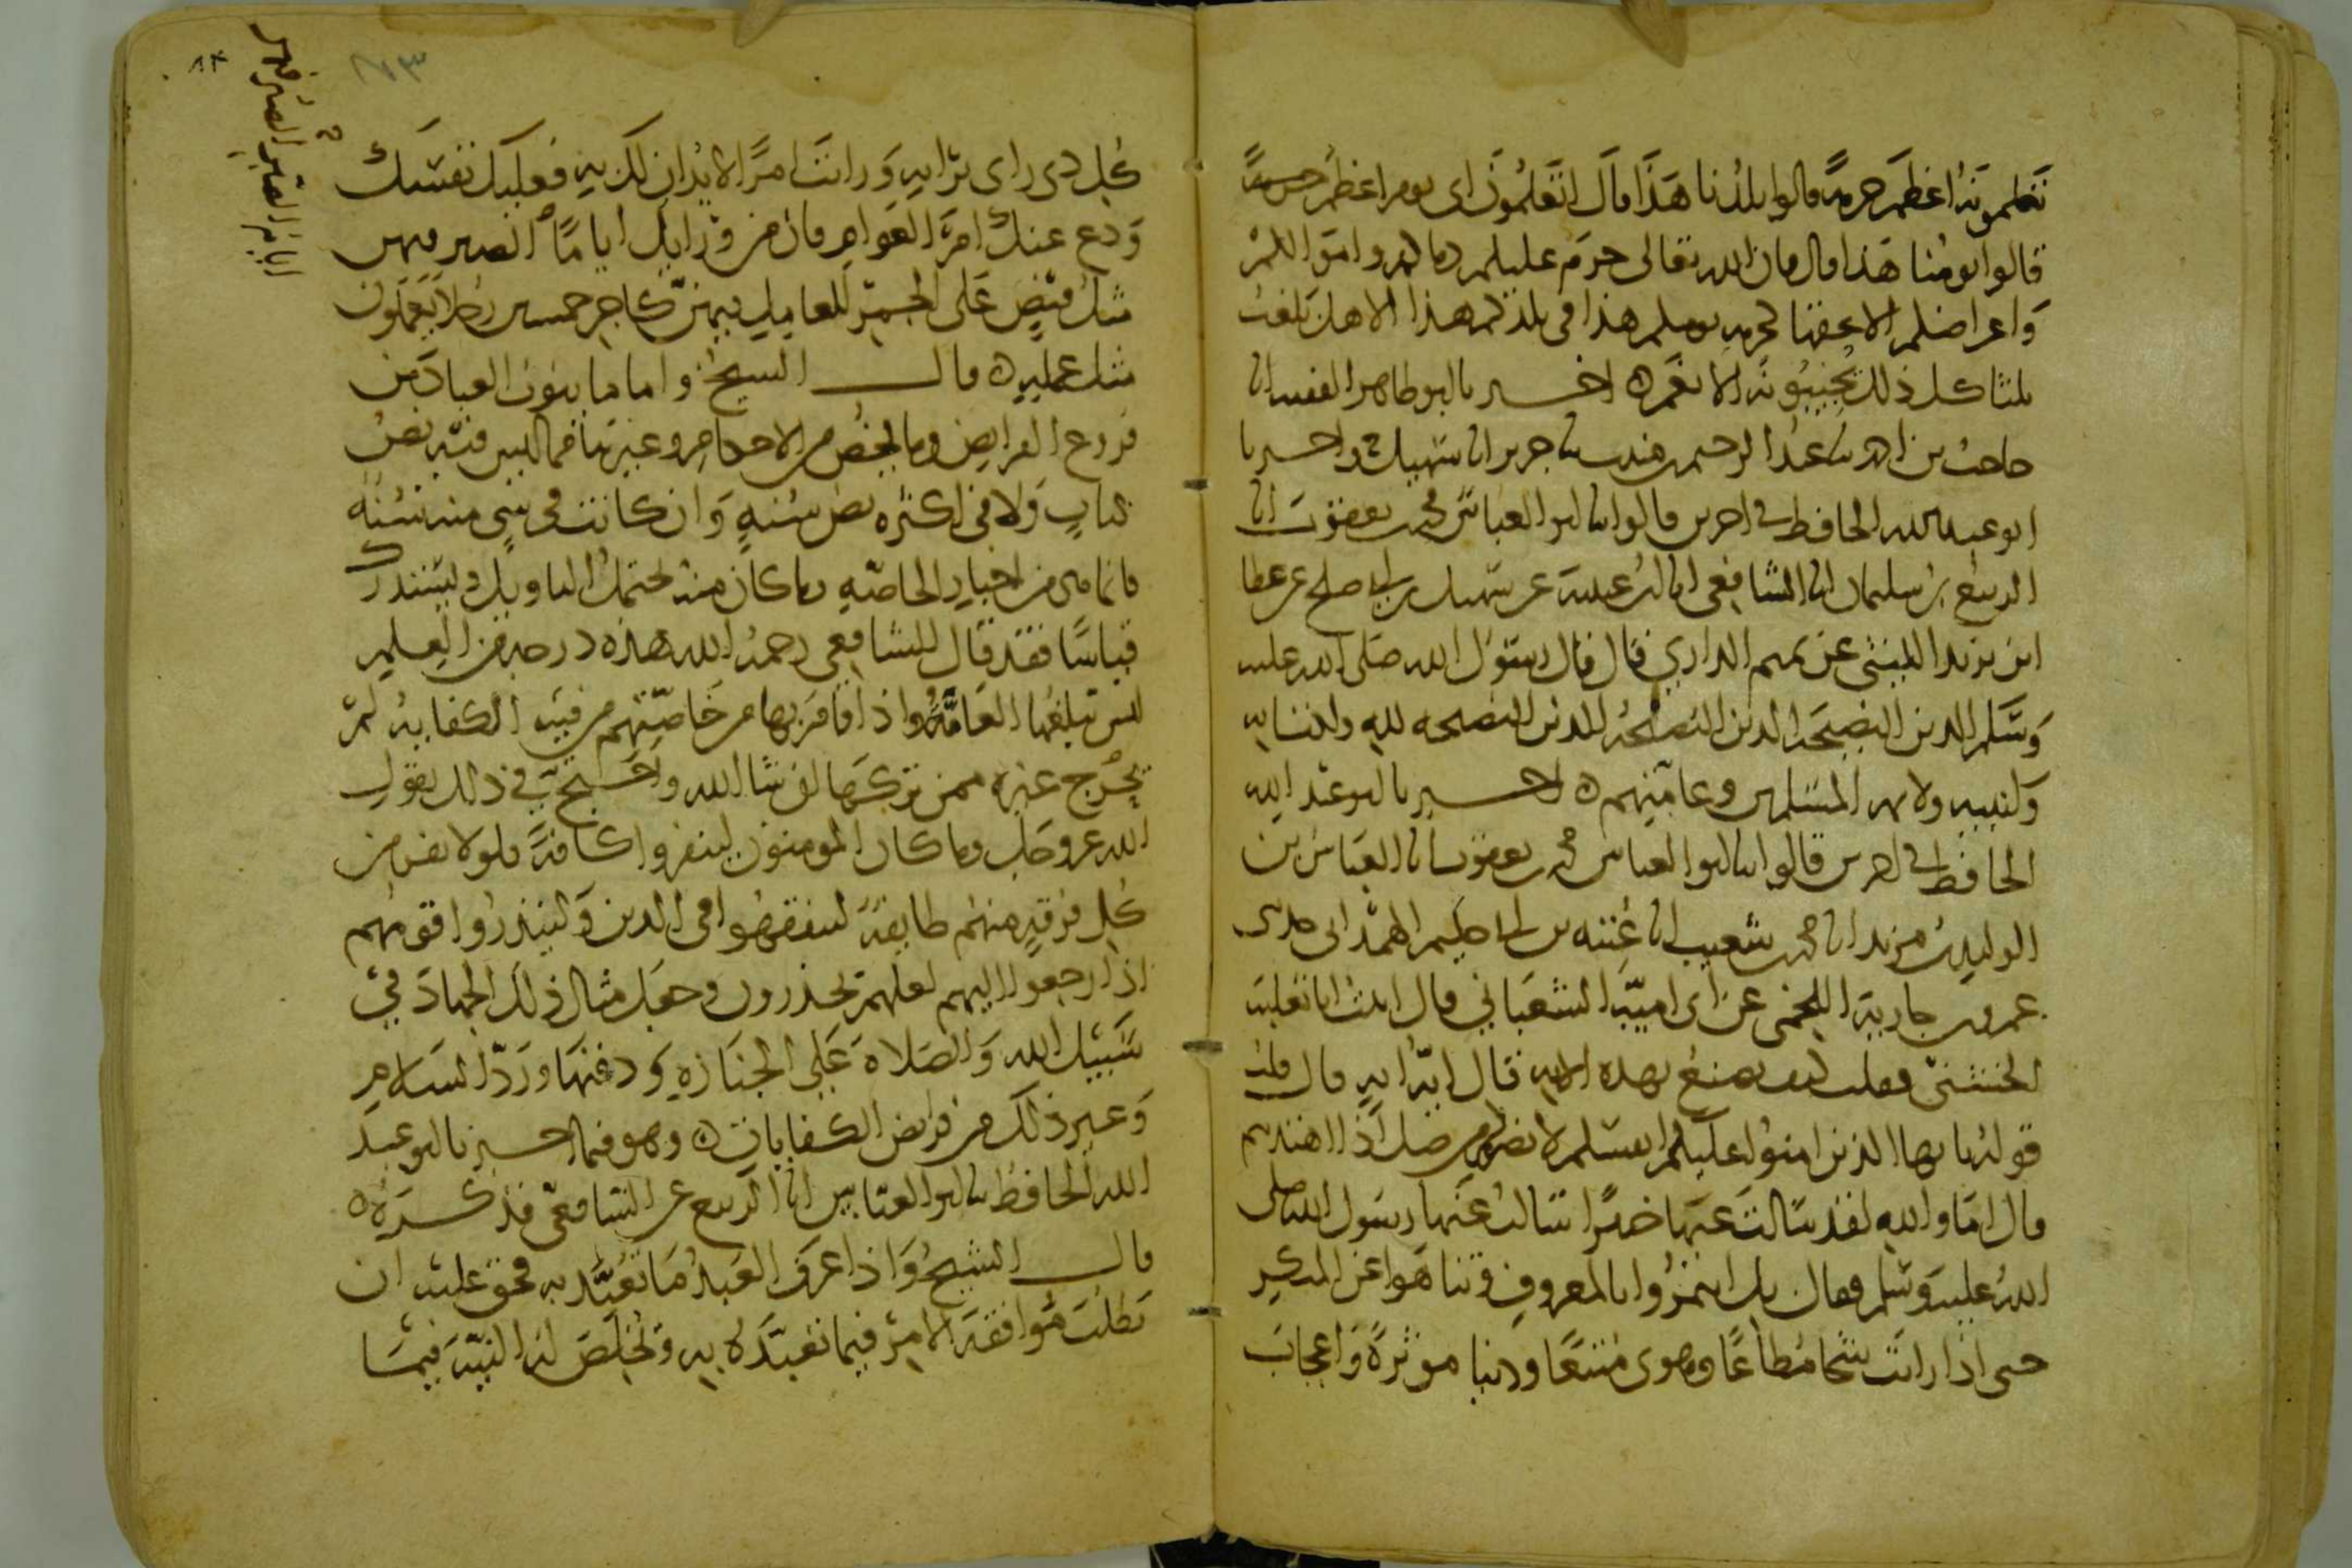 تعلمونه اعظم حرمة قالوا بلدنا هذا قال اتعلمون اى يوم اعظم حرمة
قالوا يومنا هذا قال فان الله تعالى حرم عليكم دماكم واموالكم
واعراضكم الا بحقها كحرمة يومكم هذا فى بلدكم هذا الا هل بلغت
ثلثا كل ذلك يجيبونه الا نعم ه اخبرنا ابو طاهر الفقيه انا
حاجب بن احمد نا عبد الرحيم بن منيب نا جرير انا سهيل ح واخبرنا
ابو عبد الله الحافظ فى اخرين قالوا نا ابو العباس محمد بن يعقوب انا
الربيع بن سليمان انا الشافعى انا ابن عيينة عن سهيل بن ابى صالح عن عطا
ابن يزيد الليثى عن تميم الدارى قال قال رسول الله صلى الله عليه
وسلم الدين النصيحة الدين النصيحة الدين النصيحة لله ولكتابه
ولنبيه ولايمة المسلمين وعامتهم ه اخبرنا ابو عبد الله
الحافظ فى اخرين قالوا نا ابو العباس محمد بن يعقوب انا العباس بن
الوليد بن مزيد انا محمد بن شعيب انا عتبة بن ابى حكيم الهمدانى حدثنى
عمرو بن جارية اللخمى عن ابى امية الشعبانى قال اتيت ابا ثعلبة
الخشنى فقلت كيف نصنع بهذه الاية قال اية اية قال قلت
قوله يا ايها الذين امنوا عليكم انفسكم لا يضركم من ضل اذا اهتديتم
قال اما والله لقد سالت عنها خبيرا سالت عنها رسول الله صلى
الله عليه وسلم فقال بل ايتمروا بالمعروف وتناهوا عن المنكر
حتى اذا رايت شحا مطاعا وهوى متبعا ودنيا موثرة واعجاب
٨٣
٨٤
كل ذى راى برايه ورايت امرا لا يدان لك به فعليك نفسك
ودع عنك امر العوام فان من ورايك اياما الصبر فيهن
مثل قبض على الجمر للعامل فيهن كاجر خمسين رجلا يعملون
مثل عمله ه قال الشيخ واما ما ينوب العباد من
فروع الفرايض وما يخص من الاحكام وغيرها مما ليس فيه نص
كتاب ولا فى اكثره نص سنة وان كانت فى شى منه سنة
فانما هى من اخبار الخاصة وما كان منه يحتمل التاويل ويستدرك
قياسا فقد قال الشافعى رحمه الله هذه درجة من العلم
ليس تبلغها العامة واذا قام بها من خاصتهم من فيه الكفاية لم
يخرج غيره ممن تركها ان شا الله واحتج فى ذلك بقول
الله عز وجل وما كان المومنون لينفروا كافة فلولا نفر من
كل فرقة منهم طايفة ليتفقهوا فى الدين ولينذروا قومهم
اذا رجعوا اليهم لعلهم يحذرون وجعل مثال ذلك الجهاد فى
سبيل الله والصلاة على الجنازة ودفنها ورد السلام
وغير ذلك من فرايض الكفايات ه وهو فيما اخبرنا ابو عبد
الله الحافظ نا ابو العباس انا الربيع عن الشافعى فذكره ه
قال الشيخ واذا عرف العبد ما تعبد به فحق عليه ان
يطلب موافقة الامر فيما تعبده به ويخلص له النية فيما
ايام الصابر الصبر فيهن